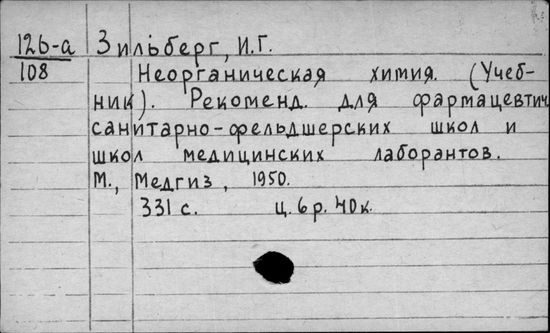 126-а Зильберг, И.Г.
108 Неорганическая химия. (Учеб-
ник). Рекоменд. для фармацевтич.
санитарно-фельдшерских школ и
школ медицинских лаборантов.
М., Медгиз, 1950.
331 с. ц. 6 р. 40 к.